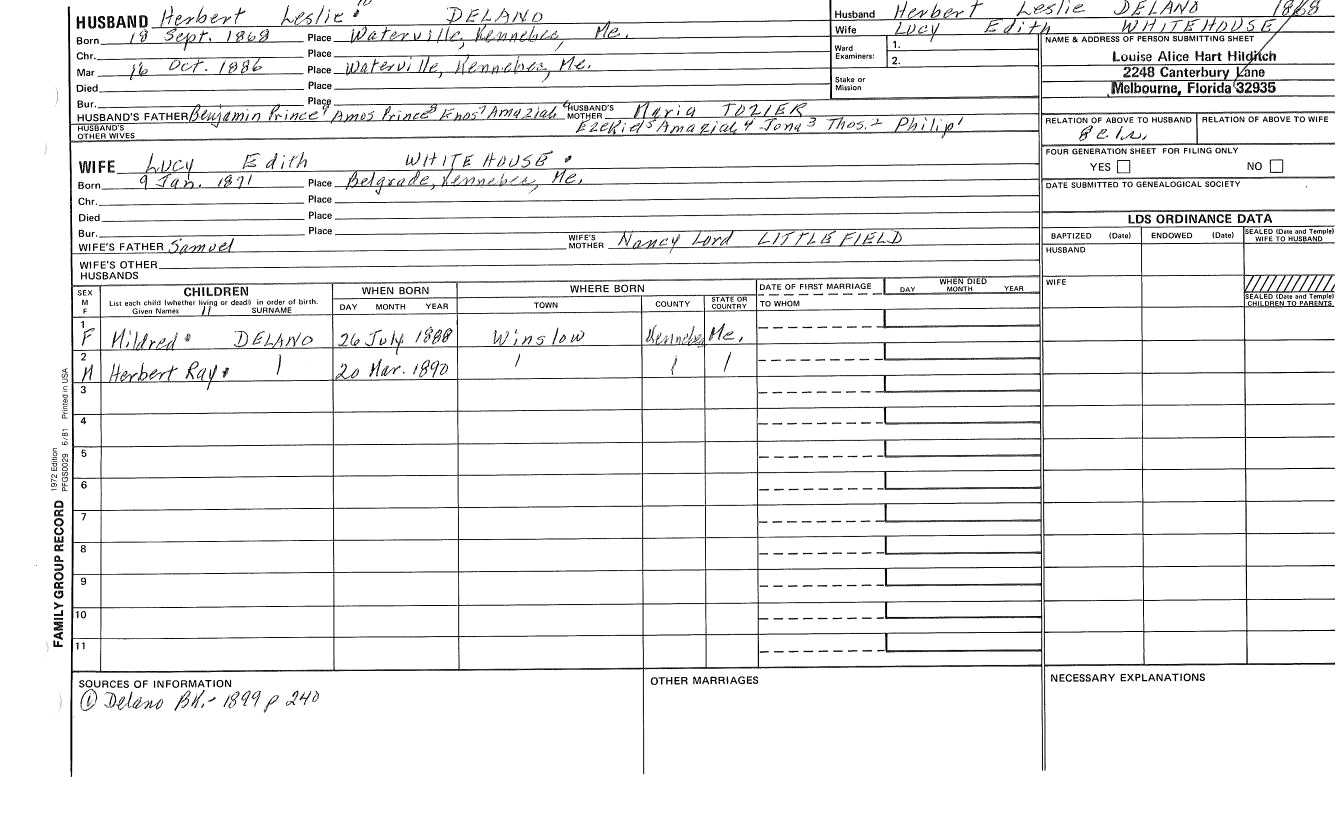 10
HUSBAND Herbert Leslie DELANO
Born 18 Sept. 1868 Place Waterville, Kennebec, Me.
Chr. Place
Mar 16 Oct. 1886 Place Waterville, Kennebec, Me.
Died Place
Bur. Place
HUSBAND'S FATHER Benjamin Prince9 Amos Prince8 Enos7 Amaziah6 HUSBAND'S MOTHER Maria TOZIER
HUSBAND'S OTHER WIVES Ezekiel5 Amaziah4 Jona3 Thos.2 Philip1
Husband Herbert Leslie DELANO 1868
Wife Lucy Edith WHITEHOUSE
Ward Examiners: 1.
2.
Stake or Mission
NAME & ADDRESS OF PERSON SUBMITTING SHEET
Louise Alice Hart Hilditch
2248 Canterbury Lane
Melbourne, Florida 32935
RELATION OF ABOVE TO HUSBAND RELATION OF ABOVE TO WIFE
FOUR GENERATION SHEET FOR FILING ONLY
YES NO
DATE SUBMITTED TO GENEALOGICAL SOCIETY
WIFE Lucy Edith WHITEHOUSE
Born 9 Jan. 1871 Place Belgrade, Kennebec, Me.
Chr. Place
Died Place
Bur. Place
WIFE'S FATHER Samuel WIFE'S MOTHER Nancy Lord LITTLEFIELD
WIFE'S OTHER HUSBANDS
LDS ORDINANCE DATA
BAPTIZED (Date) ENDOWED (Date) SEALED (Date and Temple) WIFE TO HUSBAND
HUSBAND
WIFE
SEALED (Date and Temple) CHILDREN TO PARENTS
SEX M F CHILDREN WHEN BORN WHERE BORN DATE OF FIRST MARRIAGE WHEN DIED
List each child (whether living or dead) in order of birth. DAY MONTH YEAR TOWN COUNTY STATE OR COUNTRY TO WHOM DAY MONTH YEAR
Given Names SURNAME
11
1 F Mildred DELANO 26 July 1888 Winslow Kennebec Me.
2 M Herbert Ray 20 Mar. 1890
3
4
5
6
7
8
9
10
11
FAMILY GROUP RECORD 1972 Edition PFGS0029 6/81 Printed in USA
SOURCES OF INFORMATION
① Delano BK.- 1899 p 240
OTHER MARRIAGES
NECESSARY EXPLANATIONS